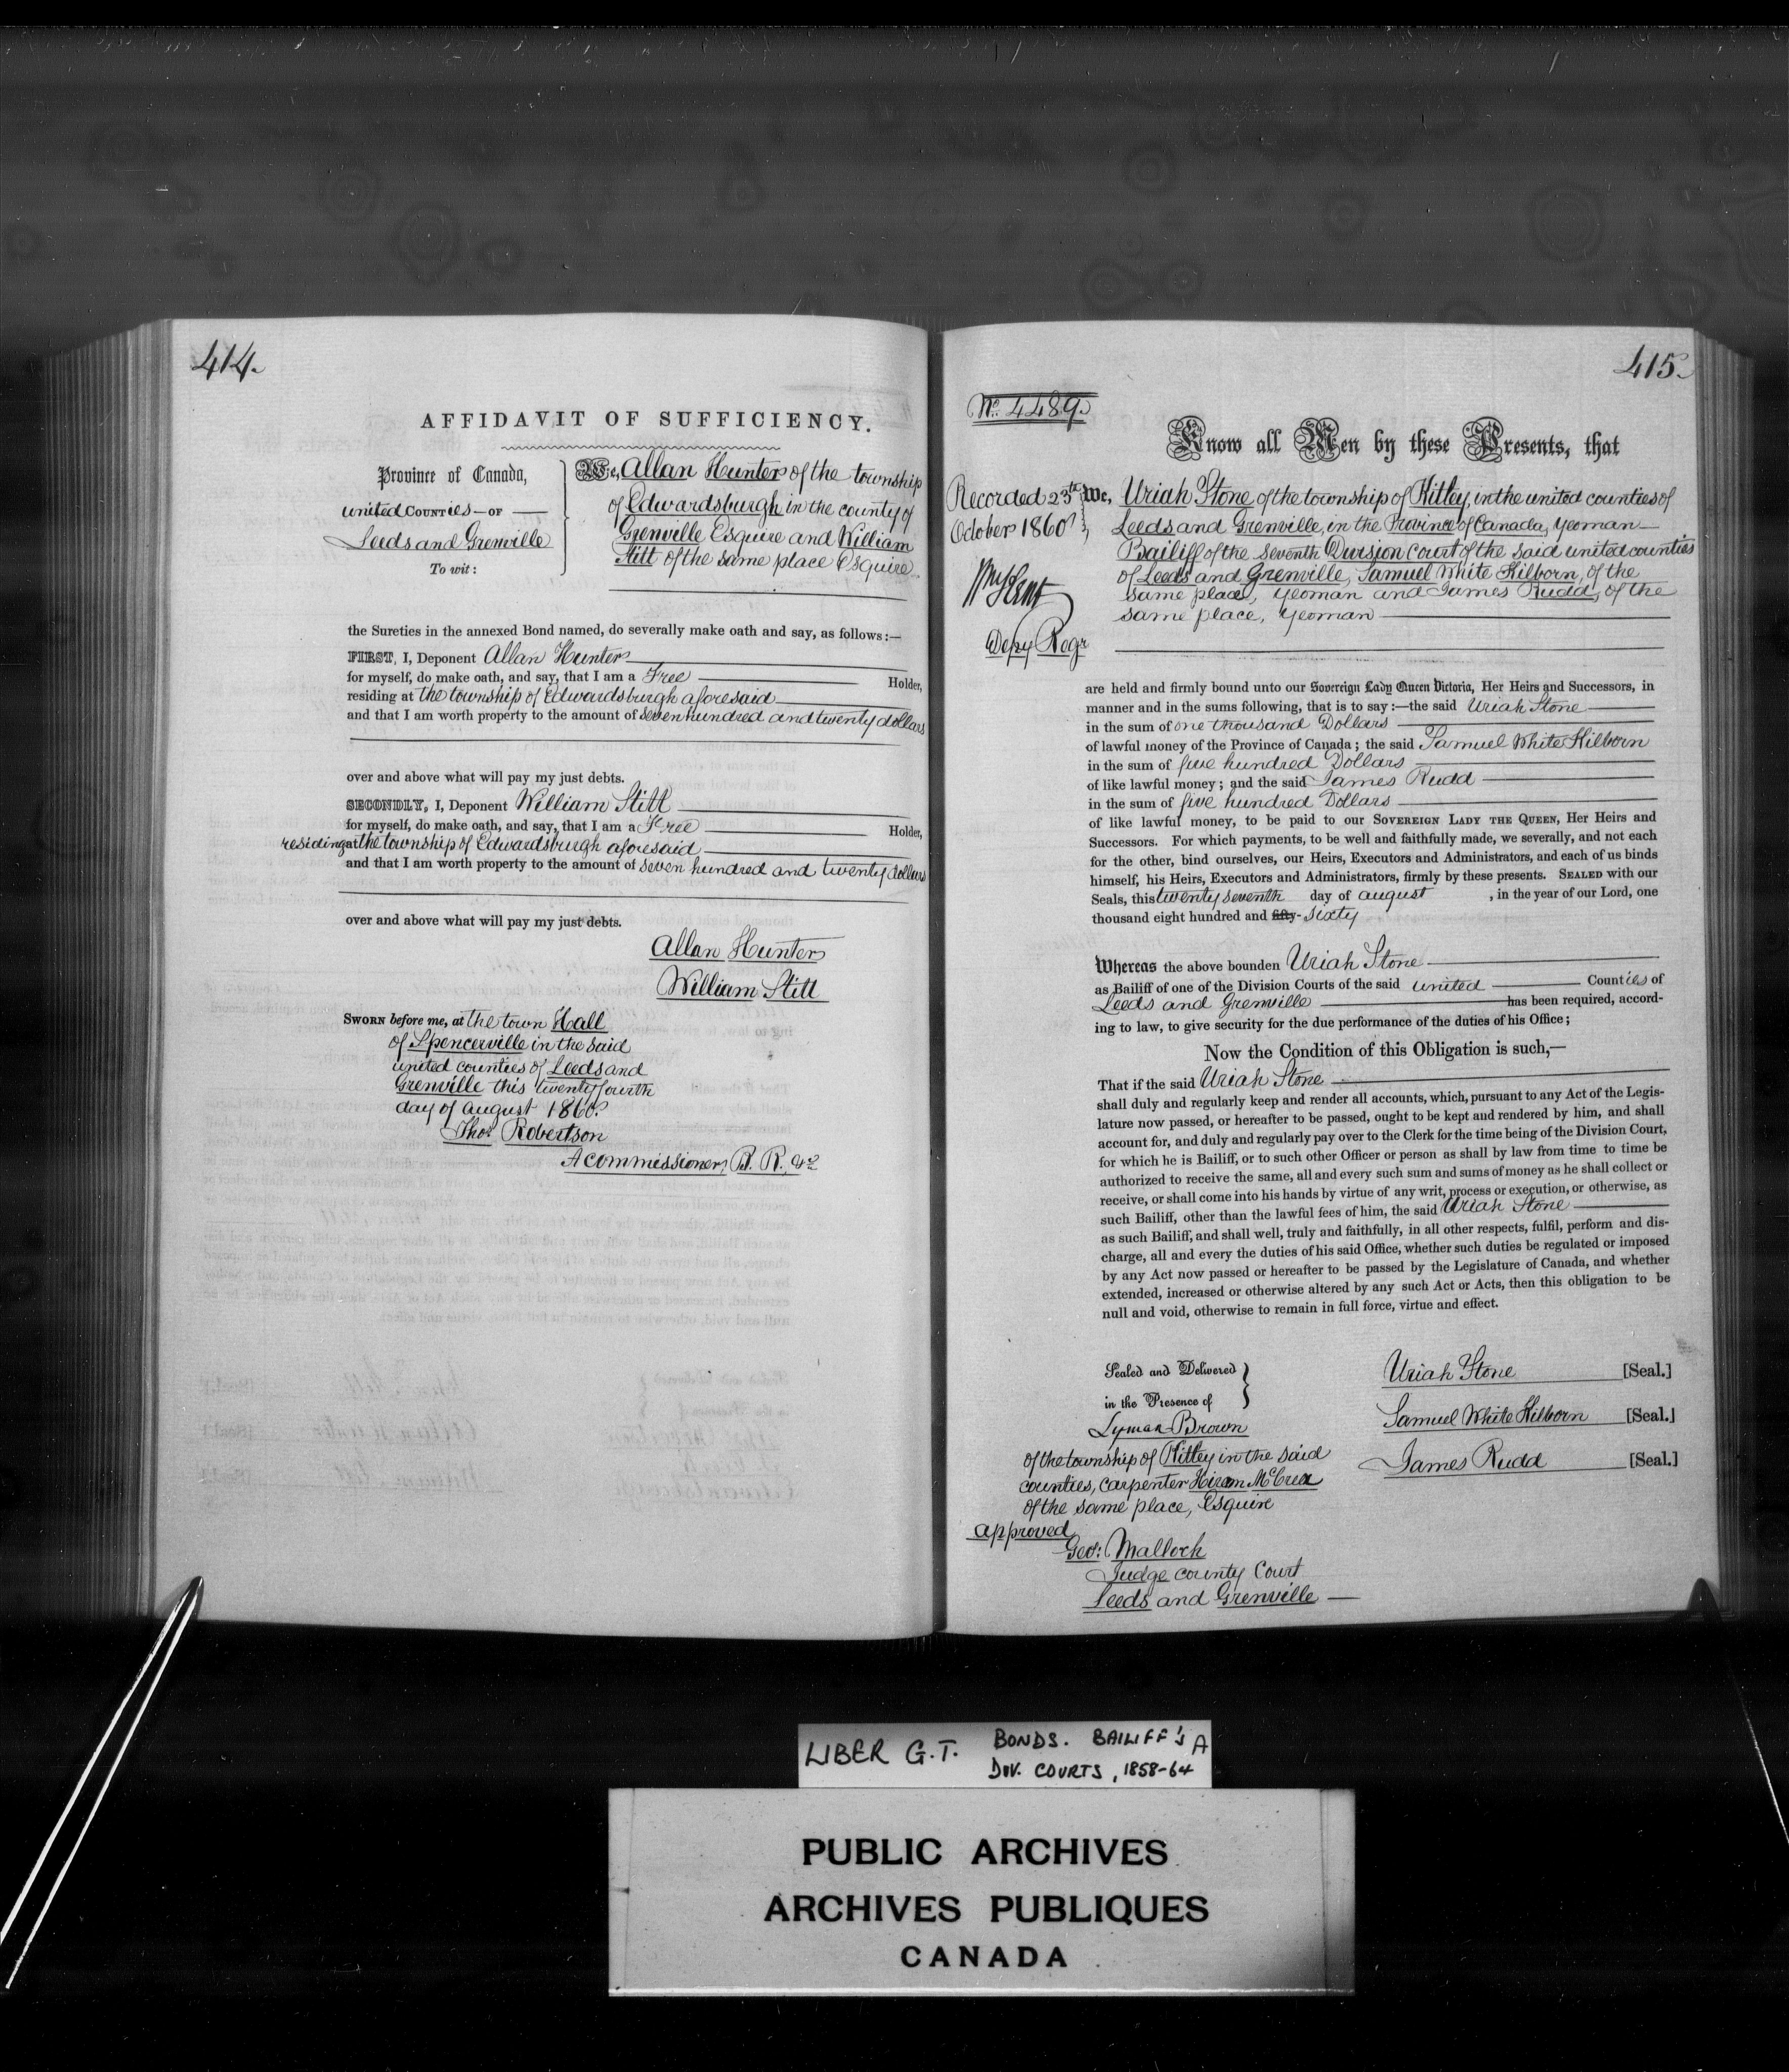 414.
AFFIDAVIT OF SUFFICIENCY.
Province of Canada,
united COUNTies — OF —
Leeds and Grenville
To wit:
We, Allan Hunter of the township
of Edwardsburgh in the county of
Grenville Esquire and William
Stitt of the same place Esquire
the Sureties in the annexed Bond named, do severally make oath and say, as follows:—
FIRST, I, Deponent Allan Hunter
for myself, do make oath, and say, that I am a Free Holder,
residing at the township of Edwardsburgh aforesaid
and that I am worth property to the amount of seven hundred and twenty dollars
over and above what will pay my just debts.
SECONDLY, I, Deponent William Stitt
for myself, do make oath, and say, that I am a Free Holder,
residing at the township of Edwardsburgh aforesaid
and that I am worth property to the amount of seven hundred and twenty dollars
over and above what will pay my just debts.
Allan Hunter
William Stitt
SWORN before me, at the town Hall
of Spencerville in the said
united counties of Leeds and
Grenville this twenty fourth
day of august 1860.
Thos Robertson
A commissioner, B. R., &c
415.
No. 4489.
Know all Men by these Presents, that
Recorded 23rd
October 1860
Wm Kent
Depy Regr
We, Uriah Stone of the township of Kitley, in the united counties of
Leeds and Grenville, in the Province of Canada, yeoman —
Bailiff of the seventh Division court of the said united counties
of Leeds and Grenville, Samuel White Kilborn, of the
same place, yeoman and James Rudd, of the
same place, yeoman
are held and firmly bound unto our Sovereign Lady Queen Victoria, Her Heirs and Successors, in
manner and in the sums following, that is to say:—the said Uriah Stone
in the sum of one thousand Dollars
of lawful money of the Province of Canada; the said Samuel White Kilborn
in the sum of five hundred Dollars
of like lawful money; and the said James Rudd
in the sum of five hundred Dollars
of like lawful money, to be paid to our SOVEREIGN LADY THE QUEEN, Her Heirs and
Successors. For which payments, to be well and faithfully made, we severally, and not each
for the other, bind ourselves, our Heirs, Executors and Administrators, and each of us binds
himself, his Heirs, Executors and Administrators, firmly by these presents. SEALED with our
Seals, this twenty seventh day of august , in the year of our Lord, one
thousand eight hundred and fifty- sixty
Whereas the above bounden Uriah Stone
as Bailiff of one of the Division Courts of the said united Counties of
Leeds and Grenville has been required, accord-
ing to law, to give security for the due performance of the duties of his Office;
Now the Condition of this Obligation is such,—
That if the said Uriah Stone
shall duly and regularly keep and render all accounts, which, pursuant to any Act of the Legis-
lature now passed, or hereafter to be passed, ought to be kept and rendered by him, and shall
account for, and duly and regularly pay over to the Clerk for the time being of the Division Court,
for which he is Bailiff, or to such other Officer or person as shall by law from time to time be
authorized to receive the same, all and every such sum and sums of money as he shall collect or
receive, or shall come into his hands by virtue of any writ, process or execution, or otherwise, as
such Bailiff, other than the lawful fees of him, the said Uriah Stone
as such Bailiff, and shall well, truly and faithfully, in all other respects, fulfil, perform and dis-
charge, all and every the duties of his said Office, whether such duties be regulated or imposed
by any Act now passed or hereafter to be passed by the Legislature of Canada, and whether
extended, increased or otherwise altered by any such Act or Acts, then this obligation to be
null and void, otherwise to remain in full force, virtue and effect.
Sealed and Delivered
in the Presence of
Lyman Brown
of the township of Kitley in the said
counties, carpenter Hiram McCrea
of the same place, Esquire
Uriah Stone [Seal.]
Samuel White Kilborn [Seal.]
James Rudd [Seal.]
approved
Geo: Malloch
Judge county Court
Leeds and Grenville —
LIBER G.T. BONDS. BAILIFF'S A
DIV. COURTS, 1858-64
PUBLIC ARCHIVES
ARCHIVES PUBLIQUES
CANADA